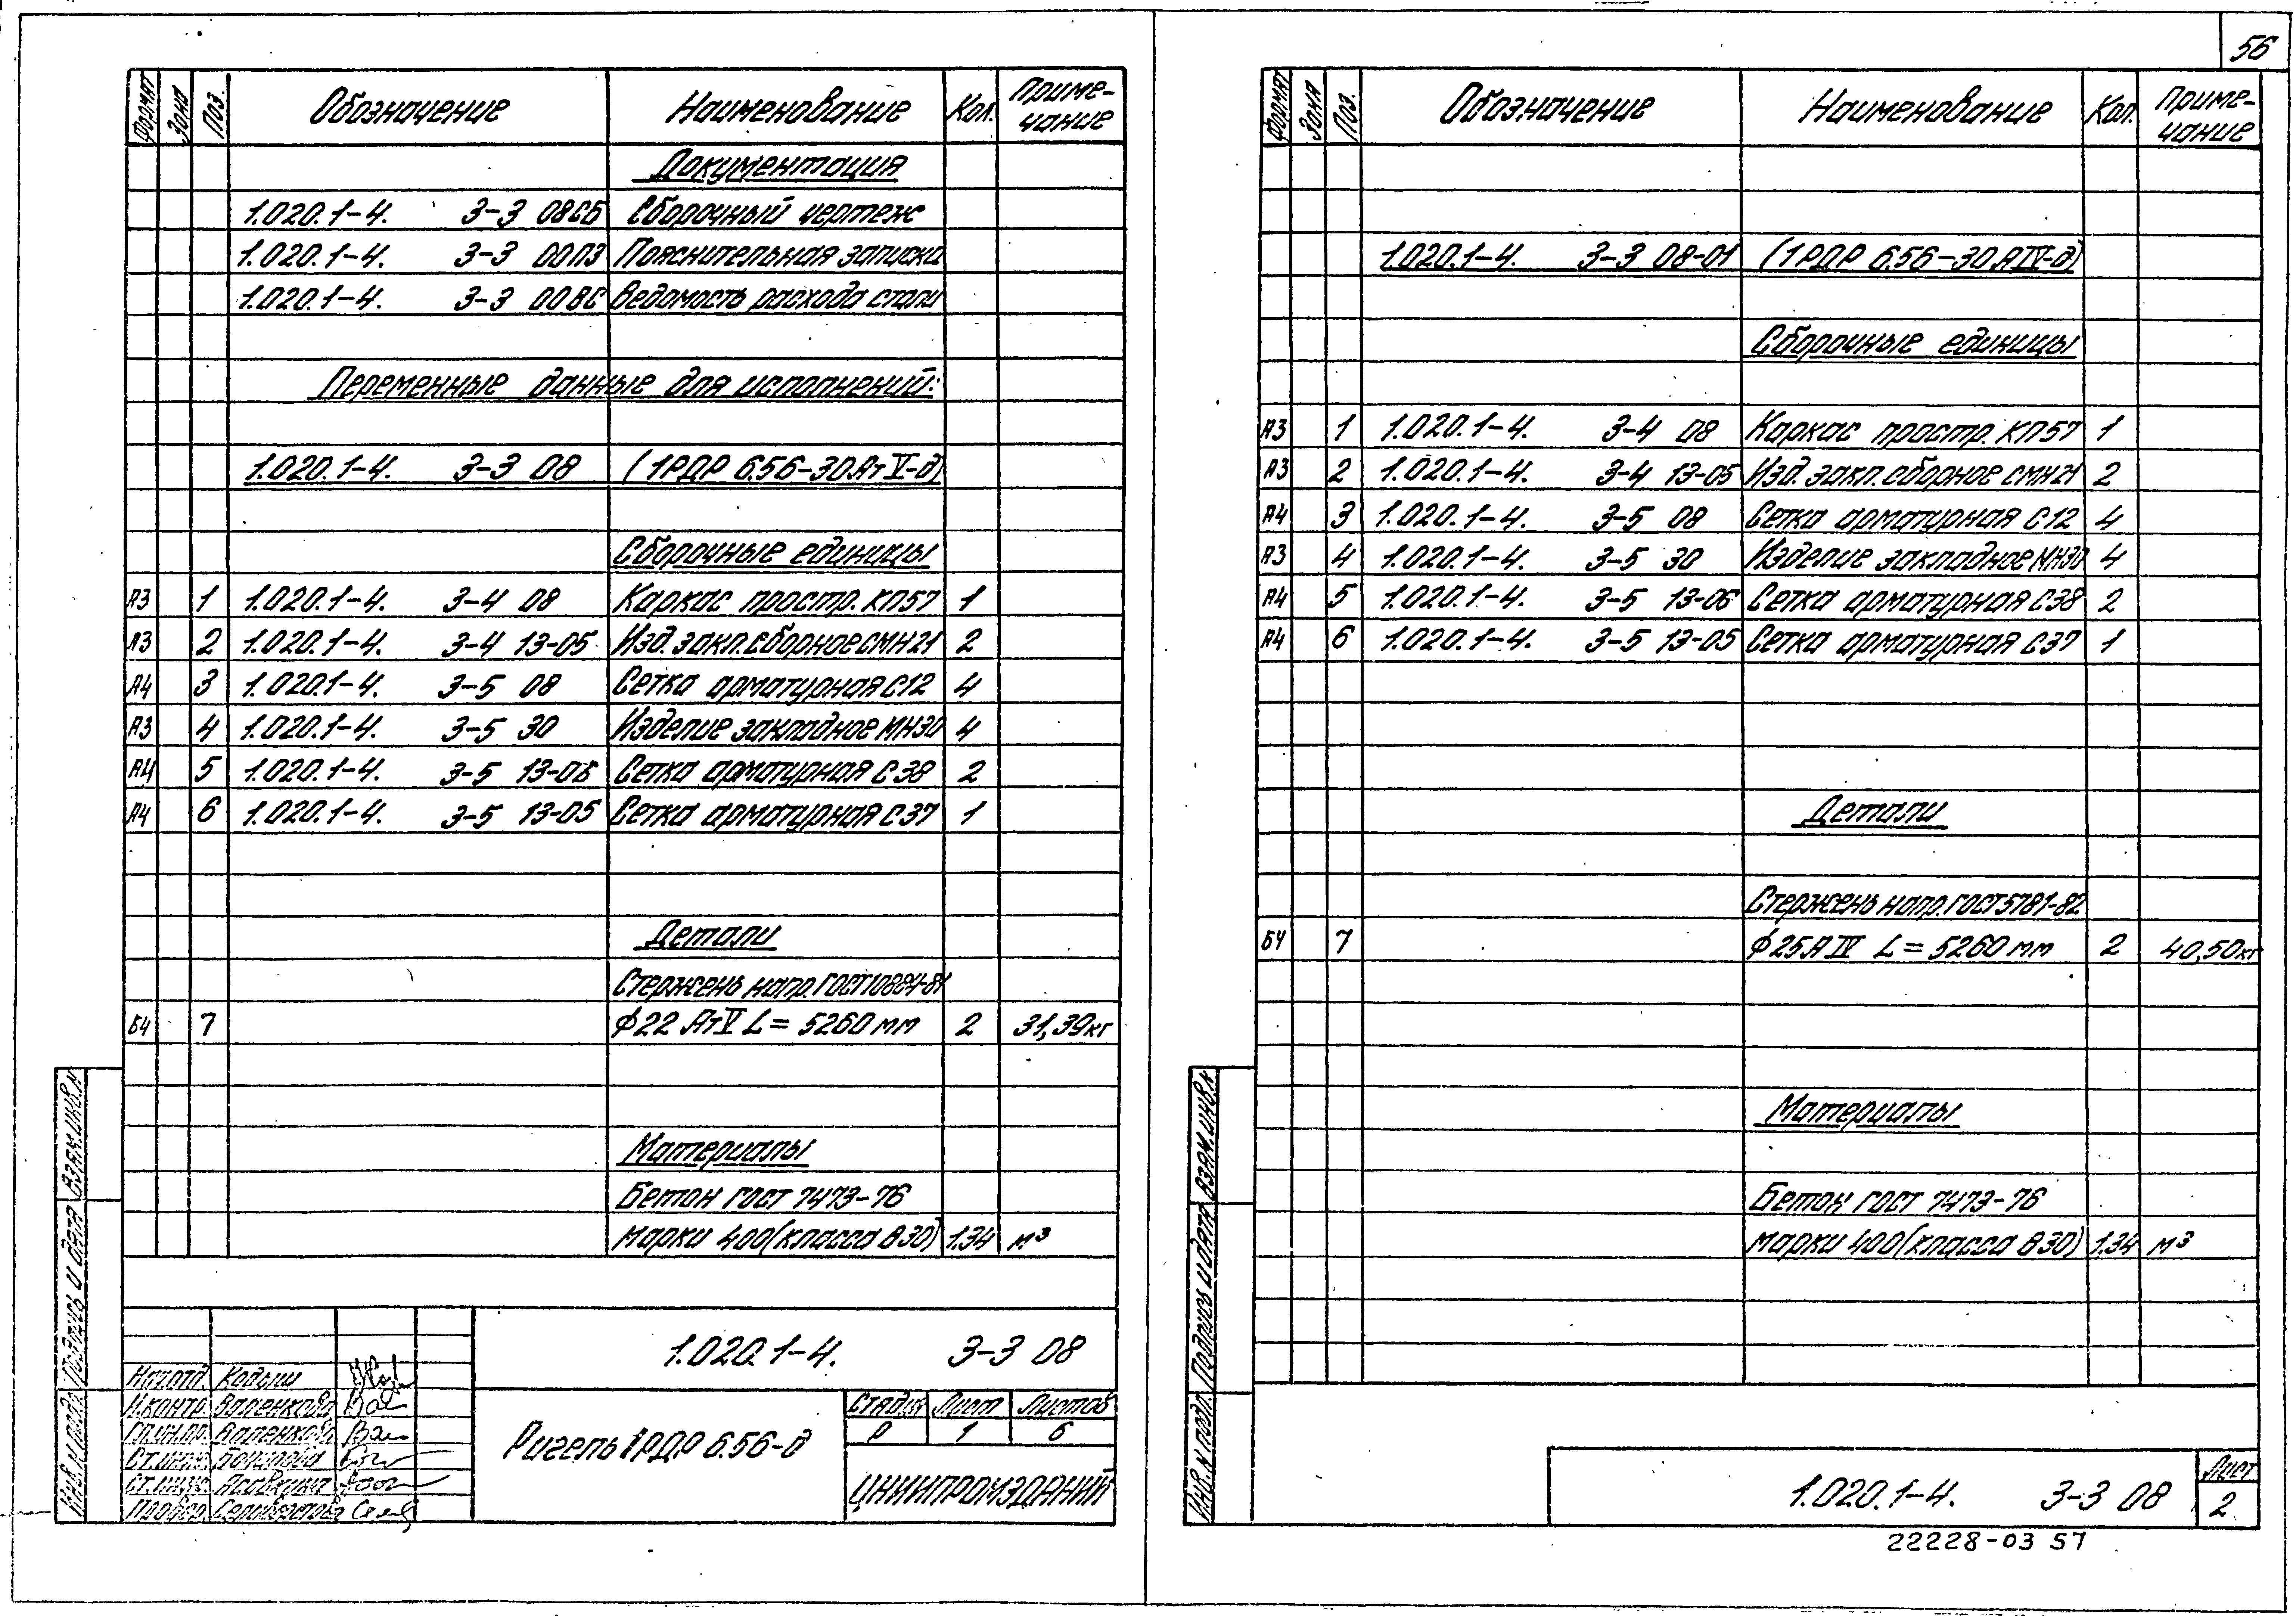 56
Формат Зона Поз. Обозначение Наименование Кол. Примечание
Документация
1.020.1-4. 3-3 08СБ Сборочный чертеж
1.020.1-4. 3-3 00ПЗ Пояснительная записка
1.020.1-4. 3-3 00ВС Ведомость расхода стали
Переменные данные для исполнений:
1.020.1-4. 3-3 08 (1РДР 6.56-30АтV-д)
Сборочные единицы
А3 1 1.020.1-4. 3-4 08 Каркас простр. КП57 1
А3 2 1.020.1-4. 3-4 13-05 Изд. закл. сборное СМН21 2
А4 3 1.020.1-4. 3-5 08 Сетка арматурная С12 4
А3 4 1.020.1-4. 3-5 30 Изделие закладное МН30 4
А4 5 1.020.1-4. 3-5 13-06 Сетка арматурная С38 2
А4 6 1.020.1-4. 3-5 13-05 Сетка арматурная С37 1
Детали
Стержень напр. ГОСТ 10884-81
БЧ 7 ϕ22 АтV L = 5260 мм 2 31,39кг
Материалы
Бетон ГОСТ 7473-76
марки 400 (класса В30) 1.34 м³
1.020.1-4. 3-3 08
Нач.отд. Кодыш
Н.контр. Валенкова
Гл.ин.пр. Валенкова
Ст.инж.
Ст.инж.
Провер. Селиверстова
Ригель 1РДР 6.56-д
Стадия Лист Листов
Р 1 6
ЦНИИПРОМЗДАНИЙ
Инв. N подл. Подпись и дата Взам. инв. N
Формат Зона Поз. Обозначение Наименование Кол. Примечание
1.020.1-4. 3-3 08-01 (1РДР 6.56-30АIV-д)
Сборочные единицы
А3 1 1.020.1-4. 3-4 08 Каркас простр. КП57 1
А3 2 1.020.1-4. 3-4 13-05 Изд. закл. сборное СМН21 2
А4 3 1.020.1-4. 3-5 08 Сетка арматурная С12 4
А3 4 1.020.1-4. 3-5 30 Изделие закладное МН30 4
А4 5 1.020.1-4. 3-5 13-06 Сетка арматурная С38 2
А4 6 1.020.1-4. 3-5 13-05 Сетка арматурная С37 1
Детали
Стержень напр. ГОСТ 5781-82
БЧ 7 ϕ25АIV L = 5260 мм 2 40,50кг
Материалы
Бетон ГОСТ 7473-76
марки 400 (класса В30) 1.34 м³
Инв. N подл. Подпись и дата Взам. инв. N
1.020.1-4. 3-3 08
Лист
2
22228-03 57